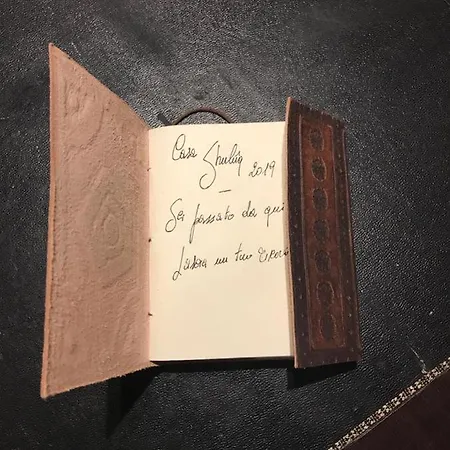 Casa Shulùq
2019
Sei passato da qui
Lascia un tuo ricordo